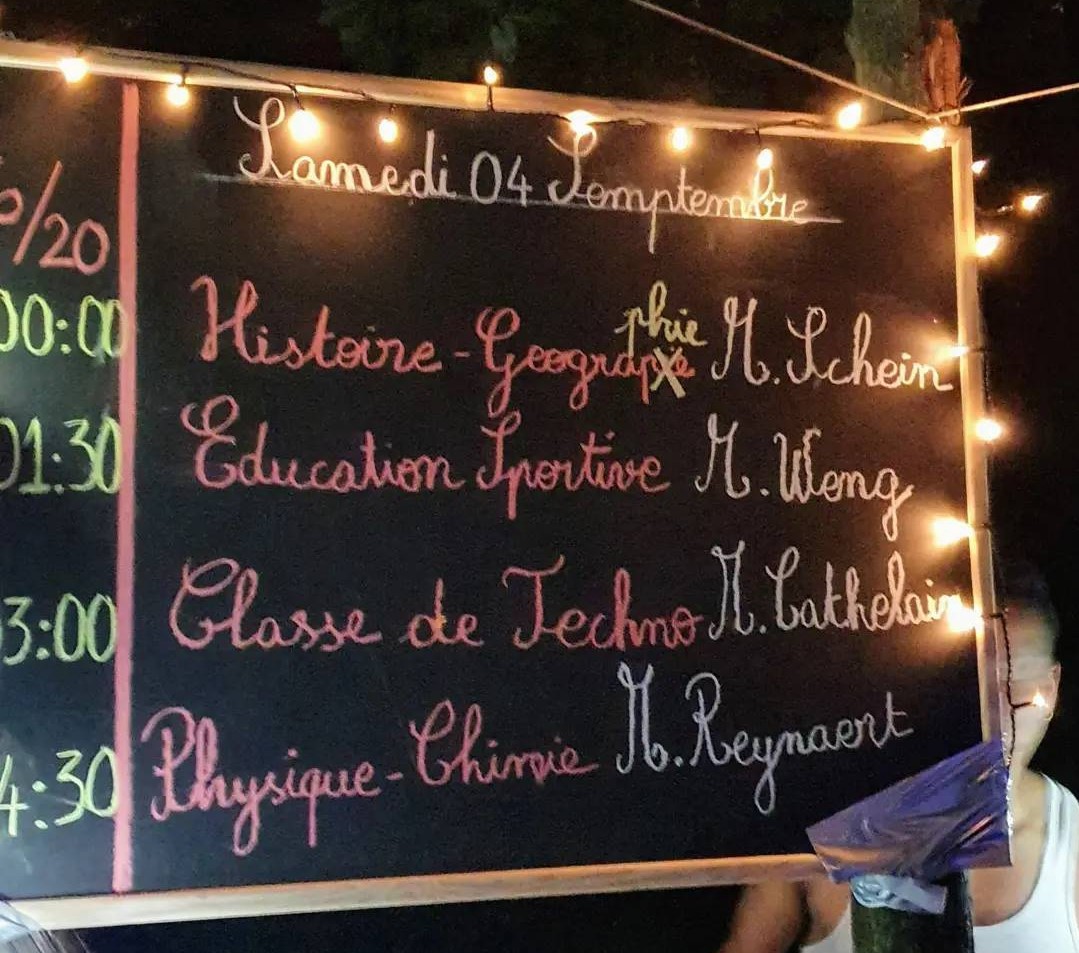 Samedi 04 Semptembre
/20
00:00 Histoire-Geographie M. Schein
01:30 Education Sportive M. Weng
3:00 Classe de Techno M. Cathelain
4:30 Physique-Chimie M. Reynaert